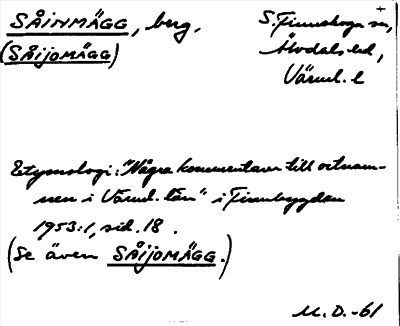 SÅINMÄGG, berg,
(SÅIJOMÄGG)
S. Finnskoga sn,
Älvdals hd,
Värml. l
Etymologi: "Några kommentarer till ortnam-
nen i Värml. län" i Finnbygden
1953:1, sid. 18.
(Se även SÅIJOMÄGG.)
M. D. -61